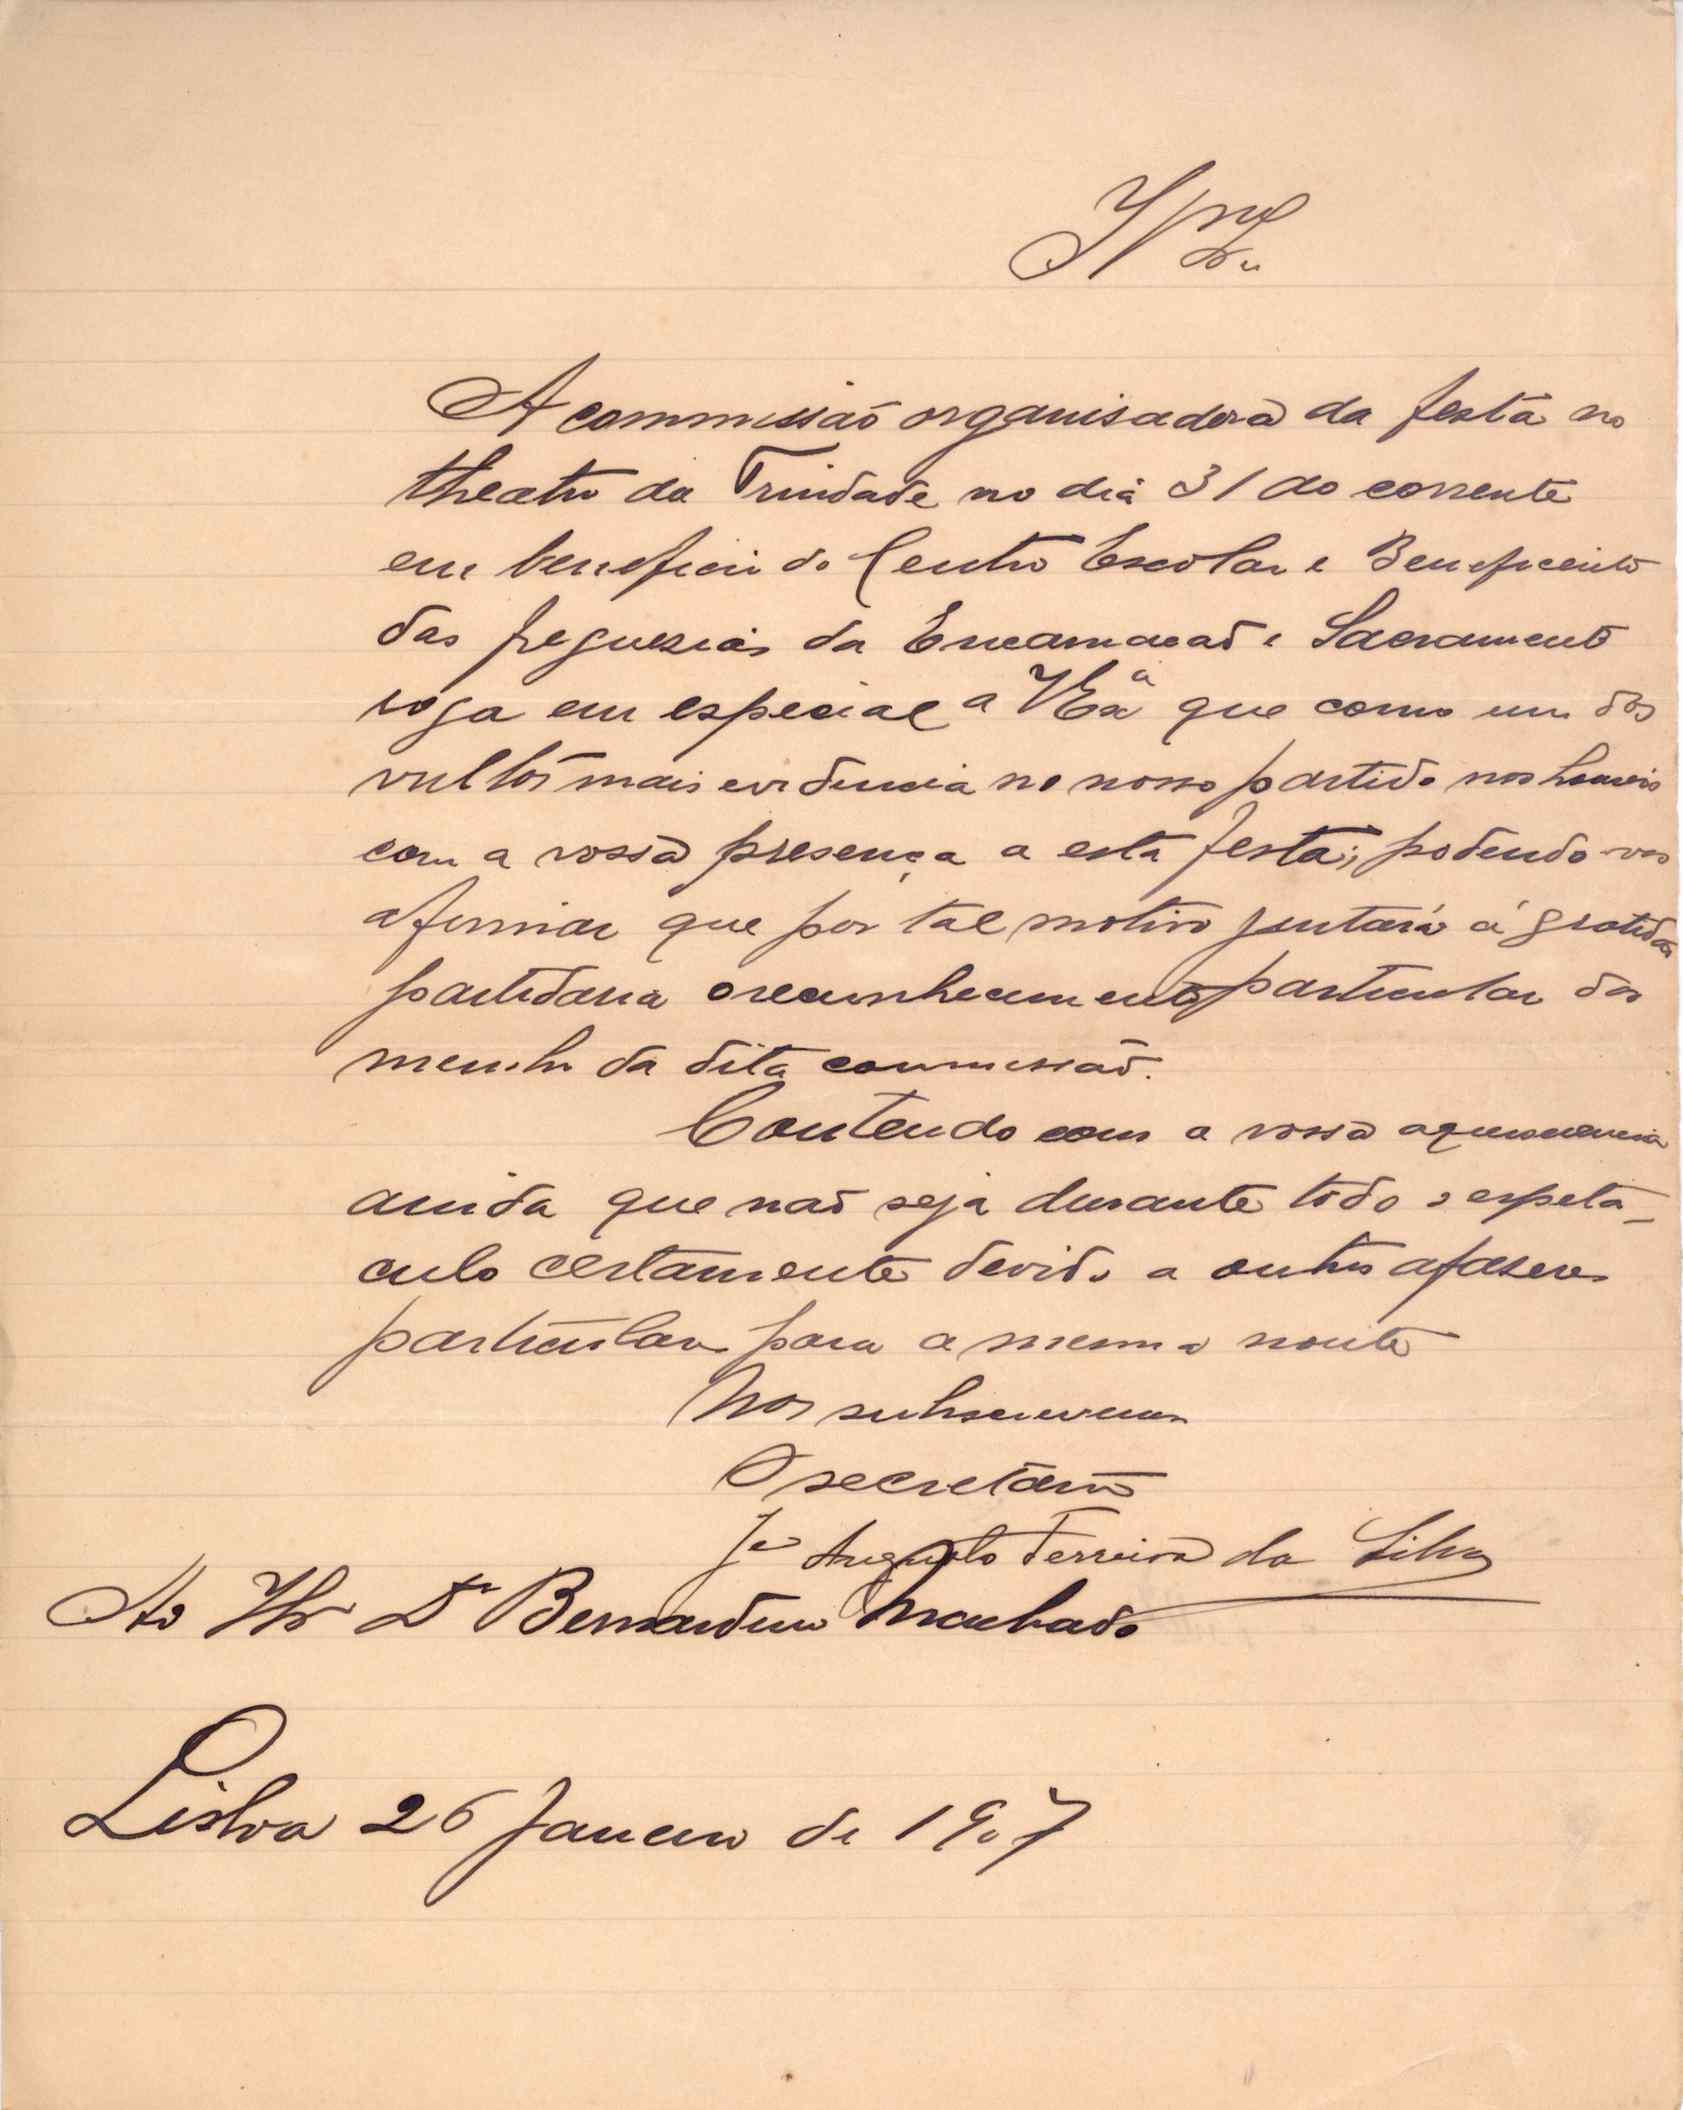 A commissão organisadora da festa no
theatro da Trindade no dia 31 do corrente
em beneficio do Centro Escolar e Beneficiente
das freguezias da Encarnação e Sacramento
roga em especial a VExª que como um dos
vultos mais evidencia no nosso partido nos honreis
com a vossa presença a esta festa; podendo-vos
afirmar que por tal motivo juntará á gratidão
partidaria o reconhecimento particular dos
membros da dita commissão.
Contando com a vossa aquiescencia
ainda que não seja durante todo o espetá-
culo certamente devido a outros afaseres
particulares para a mesma noute
Nos subscrevemos
O secretario
Jé Augusto Ferreira da Silva
Ao Dr Bernardino Machado
Lisboa 26 Janeiro de 1907